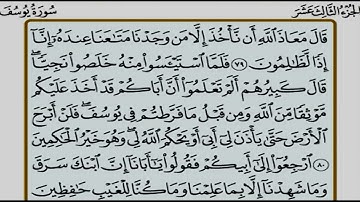 الجزء الثالث عشر سورة يوسف
قَالَ مَعَاذَ ٱللَّهِ أَن نَّأْخُذَ إِلَّا مَن وَجَدْنَا مَتَٰعَنَا عِندَهُۥٓ إِنَّآ
إِذًا لَّظَٰلِمُونَ ٧٩ فَلَمَّا ٱسْتَيْـَٔسُوا۟ مِنْهُ خَلَصُوا۟ نَجِيًّا
قَالَ كَبِيرُهُمْ أَلَمْ تَعْلَمُوٓا۟ أَنَّ أَبَاكُمْ قَدْ أَخَذَ عَلَيْكُم
مَّوْثِقًا مِّنَ ٱللَّهِ وَمِن قَبْلُ مَا فَرَّطتُمْ فِى يُوسُفَ فَلَنْ أَبْرَحَ
ٱلْأَرْضَ حَتَّىٰ يَأْذَنَ لِىٓ أَبِىٓ أَوْ يَحْكُمَ ٱللَّهُ لِى وَهُوَ خَيْرُ ٱلْحَٰكِمِينَ
٨٠ ٱرْجِعُوٓا۟ إِلَىٰٓ أَبِيكُمْ فَقُولُوا۟ يَٰٓأَبَانَآ إِنَّ ٱبْنَكَ سَرَقَ
وَمَا شَهِدْنَآ إِلَّا بِمَا عَلِمْنَا وَمَا كُنَّا لِلْغَيْبِ حَٰفِظِينَ